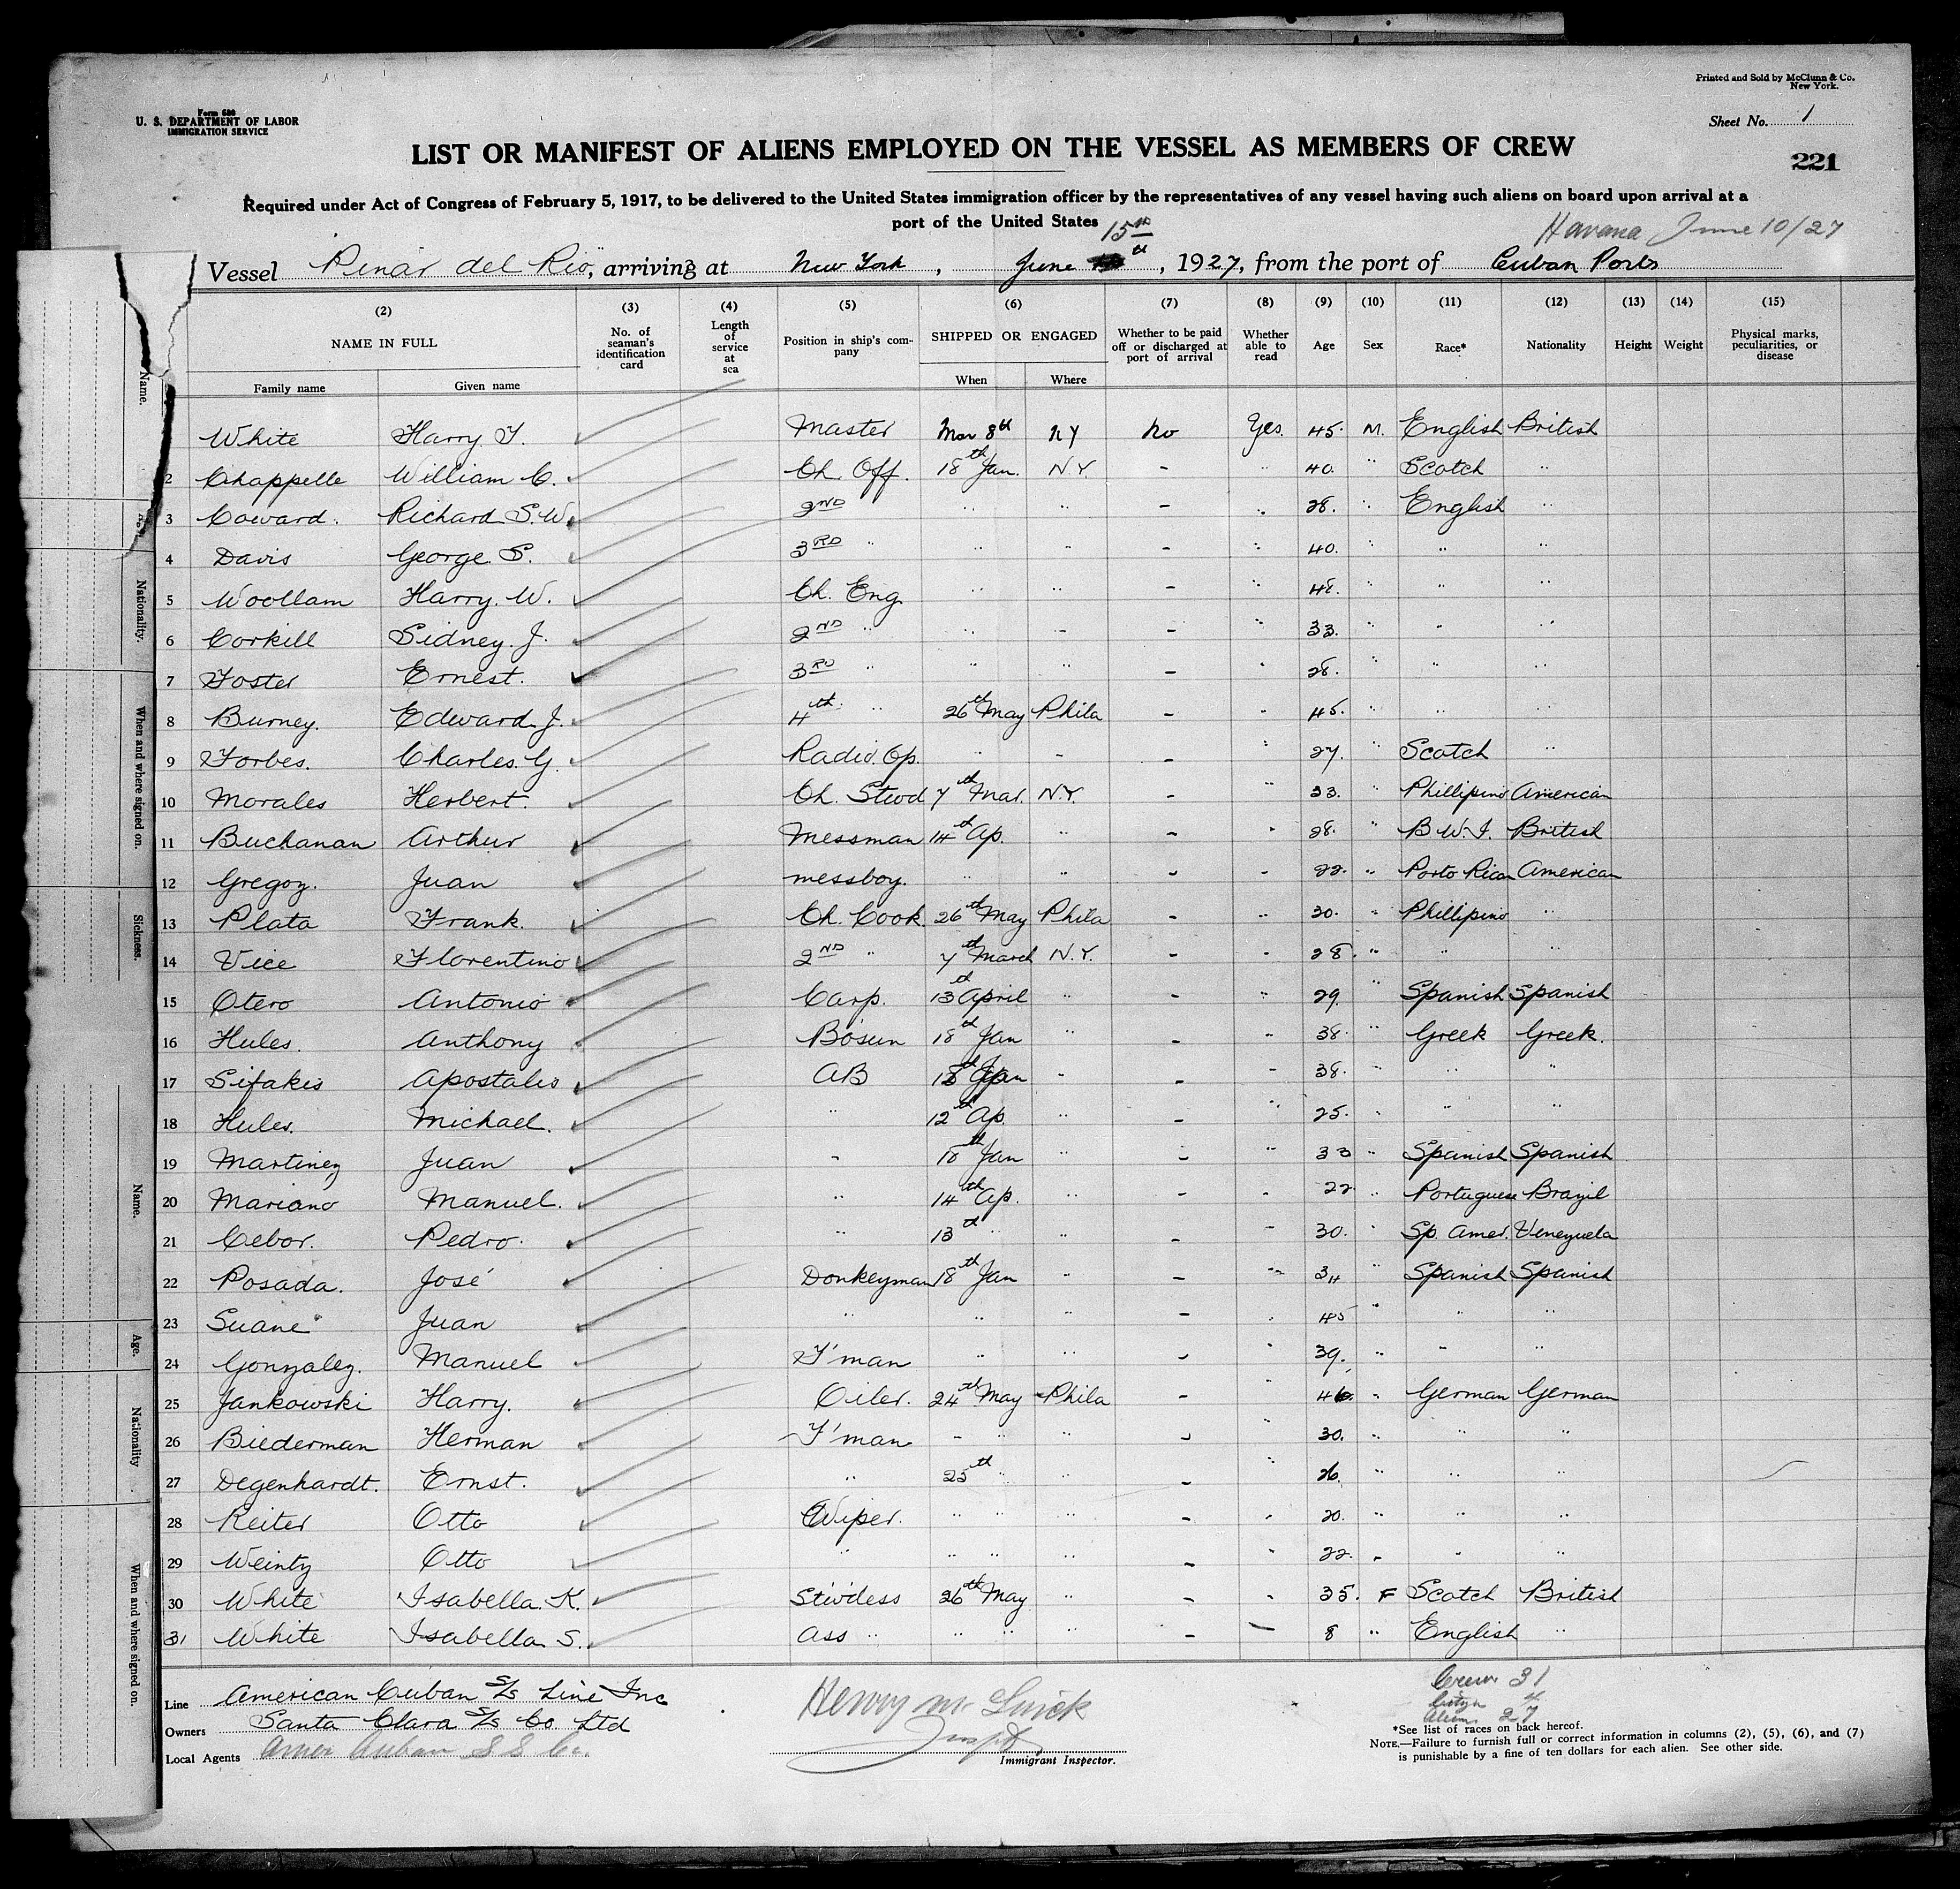 Printed and Sold by McClunn & Co.
New York.
Form 680
U. S. DEPARTMENT OF LABOR
IMMIGRATION SERVICE
Sheet No. 1
LIST OR MANIFEST OF ALIENS EMPLOYED ON THE VESSEL AS MEMBERS OF CREW
221
Required under Act of Congress of February 5, 1917, to be delivered to the United States immigration officer by the representatives of any vessel having such aliens on board upon arrival at a
port of the United States
15th
Havana June 10/27
Vessel Pinar del Rio, arriving at New York, June th, 1927, from the port of Cuban Ports
(2) (3) (4) (5) (6) (7) (8) (9) (10) (11) (12) (13) (14) (15)
NAME IN FULL No. of seaman's identification card Length of service at sea Position in ship's company SHIPPED OR ENGAGED Whether to be paid off or discharged at port of arrival Whether able to read Age Sex Race* Nationality Height Weight Physical marks, peculiarities, or disease
Family name Given name When Where
White Harry T. Master Mar 8th NY No Yes. 45. M. English British
2 Chappelle William C. Ch. Off. 18th Jan. N.Y. - " 40. " Scotch "
3 Coward. Richard S.W. 2ND " " - " 28. " English "
4 Davis George S. 3RD " " " - " 40. " " "
5 Woollam Harry. W. Ch. Eng. " " - " 48. " " "
6 Corkill Sidney. J. 2ND " " " - " 33. " " "
7 Foster Ernest. 3RD " " " - " 28. " " "
8 Burney. Edward J. 4th " 26th May Phila - " 45. " " "
9 Forbes. Charles G. Radio Op. " " - " 27. " Scotch "
10 Morales Herbert. Ch. Stwd 7th Mar. N.Y. - " 33. " Phillipino American
11 Buchanan Arthur Messman 14th Ap. " - " 28. " B.W.I. British
12 Gregoz. Juan messboy. " " - " 22. " Porto Rican American
13 Plata Frank. Ch. Cook 26th May Phila - " 30. " Phillipino "
14 Vice Florentino 2ND " 7th March N.Y. - " 28. " " "
15 Otero Antonio Carp. 13th April " - " 29. " Spanish Spanish
16 Hules. Anthony Bosun 18th Jan " - " 38. " Greek Greek.
17 Sifakis Apostalis AB 18th Jan " - " 38. " " "
18 Hules. Michael. " 12th Ap. " - " 25. " " "
19 Martinez Juan " 18th Jan " - " 33 " Spanish Spanish
20 Mariano Manuel. " 14th Ap. " - " 22 " Portuguese Brazil
21 Cebor. Pedro. " 13th " " - " 30. " Sp. Amer. Venezuela
22 Posada. José Donkeyman 18th Jan " - " 34 " Spanish Spanish
23 Suane Juan " " " - " 45 " " "
24 Gonzalez. Manuel F'man " " - " 39. " " "
25 Jankowski Harry. Oiler. 24th May Phila - " 46. " German German
26 Biederman Herman F'man " " " - " 30. " " "
27 Degenhardt. Ernst. " 25th " " - " 26. " " "
28 Reiter Otto Wiper. " " " - " 20. " " "
29 Weintz Otto " " " " - " 22. " " "
30 White Isabella. K. Stwdess 26th May " - " 35. F Scotch British
31 White Isabella S. Ass " " " " - — 8 " English "
Line American Cuban S/S Line Inc
Owners Santa Clara S/S Co Ltd
Local Agents Amer Cuban S S Co.
Immigrant Inspector.
Crew 31
Aliens 27
*See list of races on back hereof.
NOTE.—Failure to furnish full or correct information in columns (2), (5), (6), and (7)
is punishable by a fine of ten dollars for each alien. See other side.
Name.
Nationality.
When and where signed on.
Sickness.
Name.
Age.
Nationality
When and where signed on.